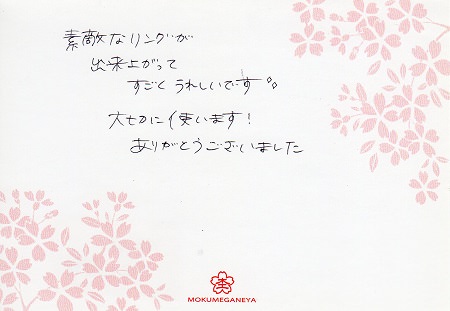 素敵なリングが
出来上がって
すごくうれしいです。
大切に使います!
ありがとうございました
MOKUMEGANEYA